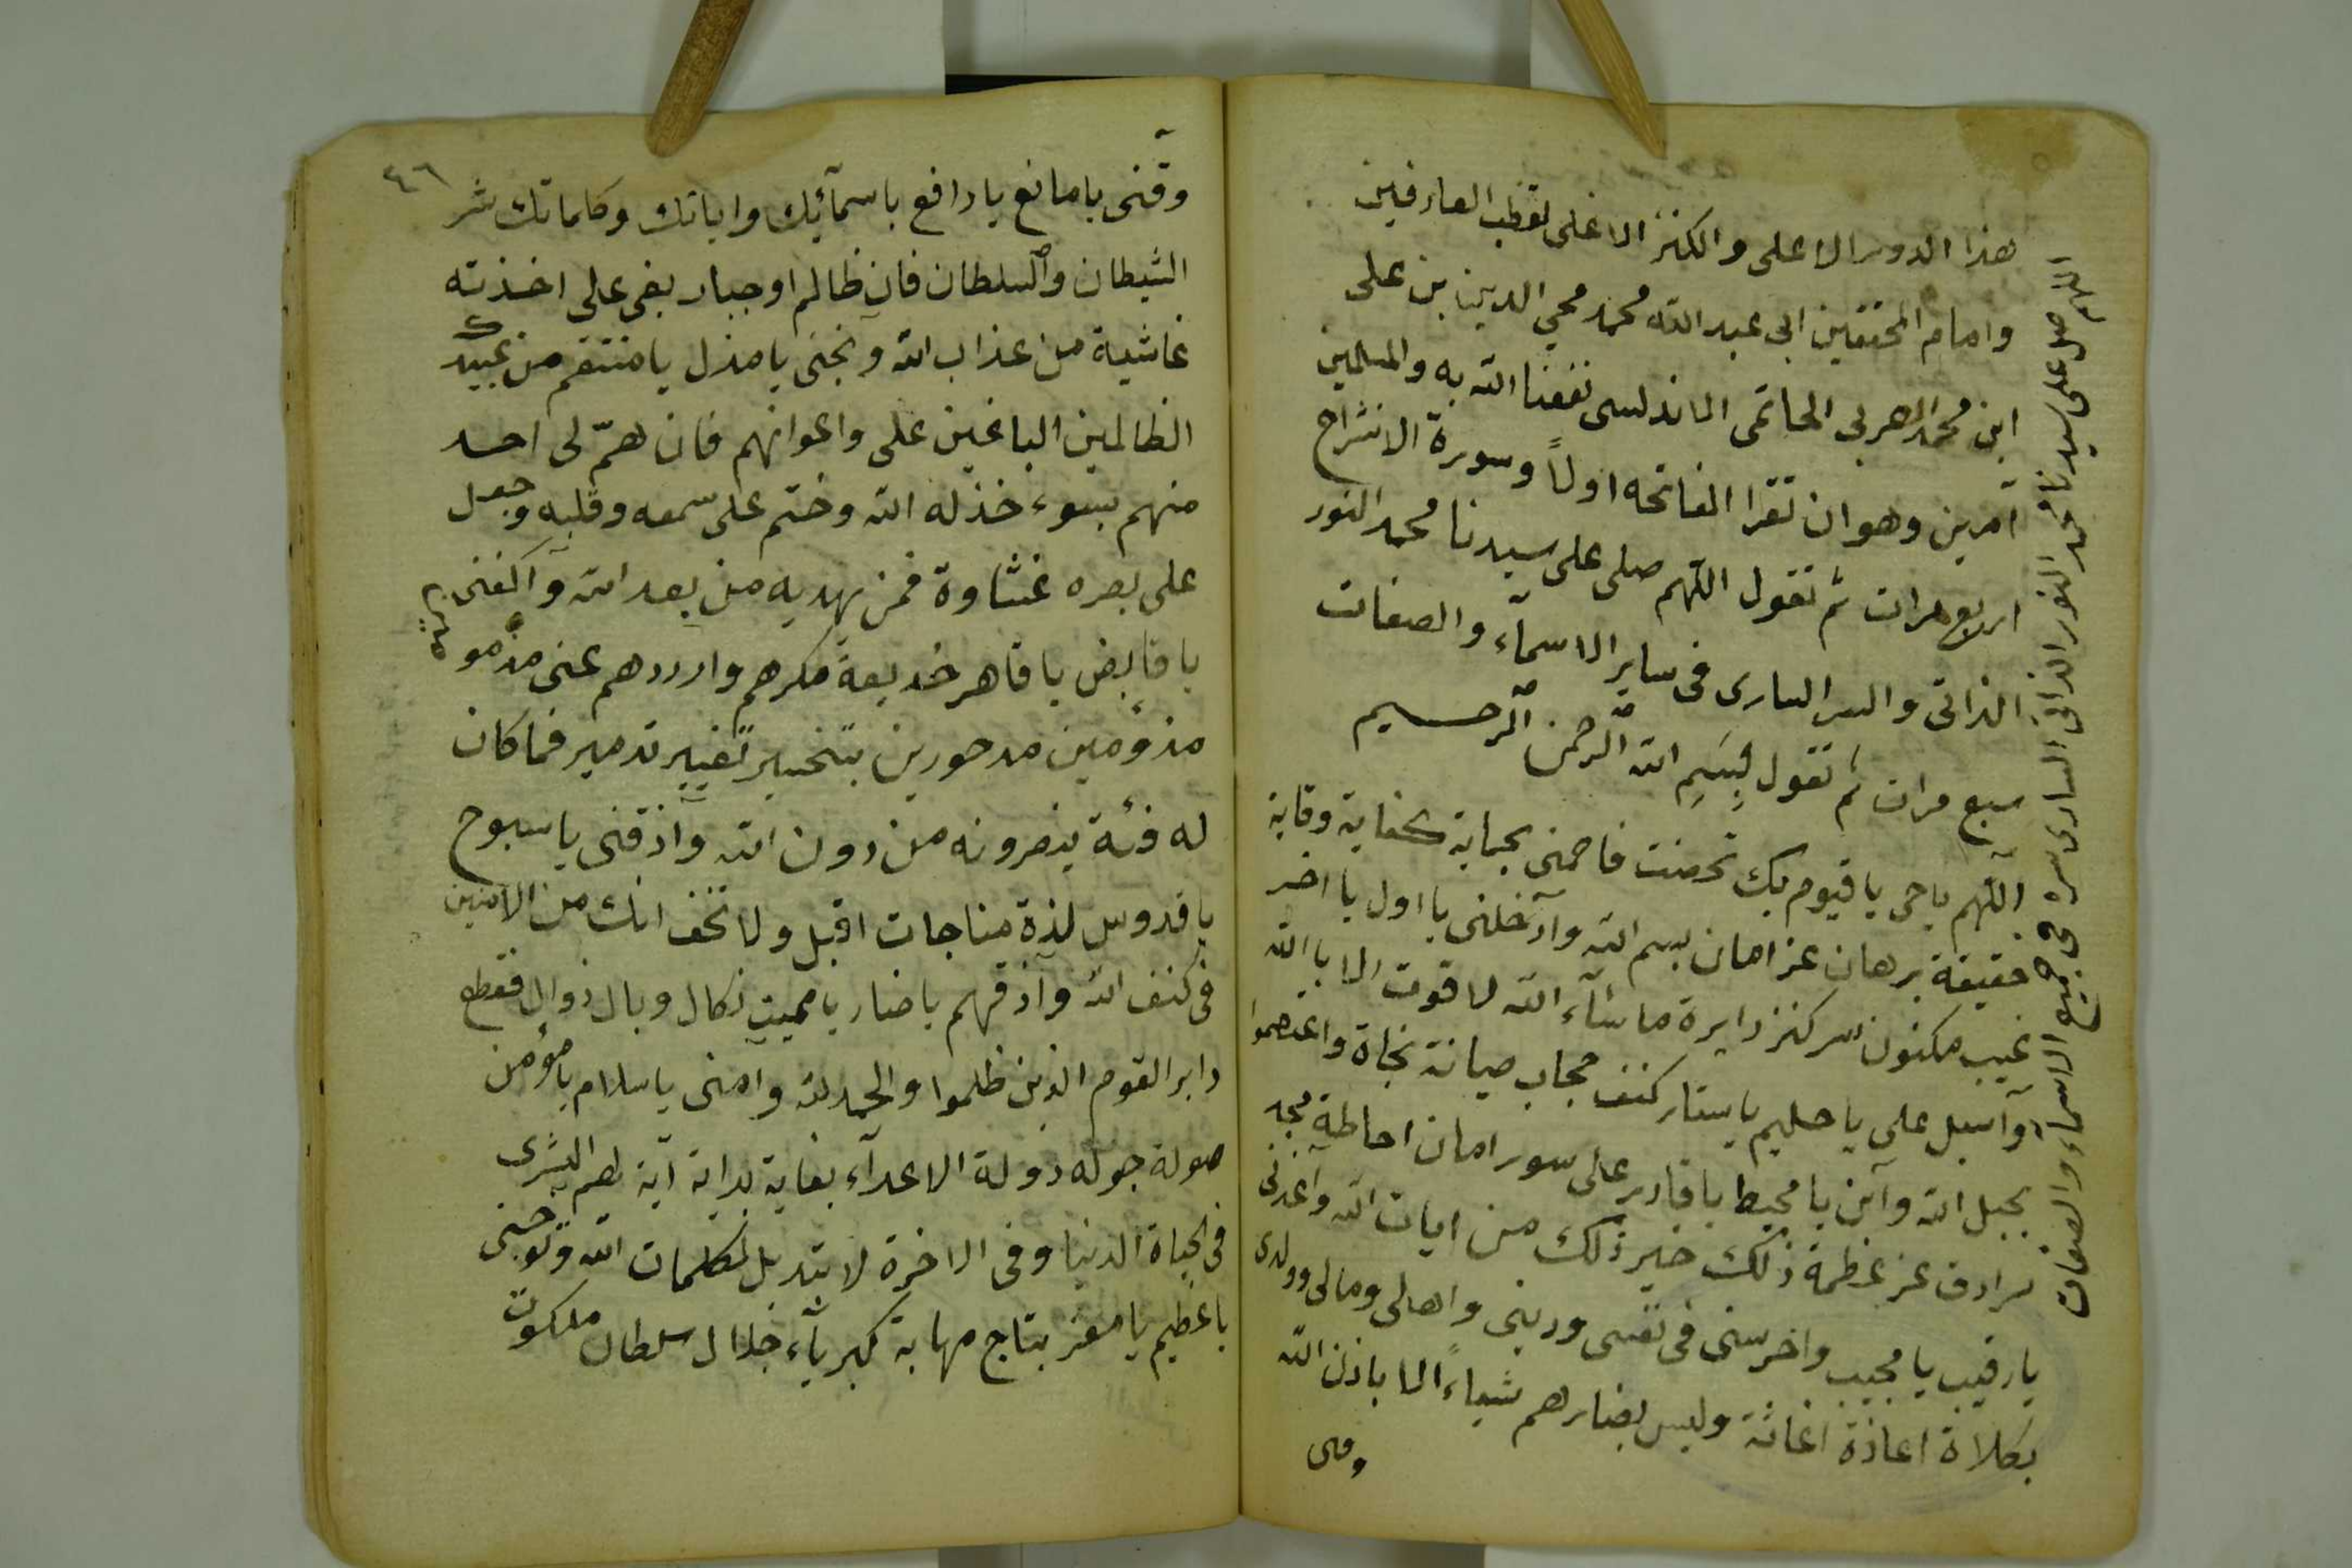 هذا الدور الاعلى والكنز الاغلى لقطب العارفين
وامام المحققين ابى عبد الله محمد محي الدين بن على
ابن محمد العربى الحاتمى الاندلسى نفعنا الله به والمسلمين
آمرين وهو ان تقرا الفاتحه اولاً وسورة الانشراح
اربع مرات ثم تقول اللهم صلى على سيدنا محمد النور
الذاتى والسر السارى فى ساير الاسمآء والصفات
سبع مرات ثم تقول بِسْمِ الله الرحمن الرحيم
اللهم ياحى يا قيوم بك تحصنت فاحمنى بحماية كفاية وقاية
حقيقة برهان عز امان بسم الله وآدخلنى يا اول يا اخر
غيب مكنون سر كنز دايرة ما شآء الله لا قوت الا بالله
وآسبل على يا حليم يا ستار كنف حجاب صيانة نجاة واعتصموا
بحبل الله وآبن يا محيط يا قادر على سور امان احاطة مجد
سرادق عز عظمة ذلك خير ذلك من ايات الله وآعذنى
يا رقيب يا مجيب واحرسنى فى نفسى ودينى واهلى ومالى وولدى
بكلاة اعاذة اغاثة وليس بضارهم شياءً الا باذن الله
وقنى
اللهم صل على سيدنا محمد النور الذاتى السارى سره فى جميع الاسماء والصفات
٤٦
وقنى يا مانع يا دافع باسمآئك واياتك وكلماتك شر
الشيطان والسلطان فان ظالم او جبار بغى على اخذته
غاشية من عذاب الله ونجنى يا مذل يا منتقم من عبيدك
الظالمين الباغين على واعوانهم فان همّ لى احد
منهم بسوء خذله الله وختم على سمعه وقلبه وجعل
على بصره غشاوة فمن يهديه من بعد الله وآكفنى
يا قابض يا قاهر خديعة مكرهم وارددهم عنى مذمو
مذؤمين مدحورين بتخسير تغيير تدمير فما كان
له فئة ينصرونه من دون الله وآذقنى يا سبوح
يا قدوس لذة مناجات اقبل ولا تخف انك من الامنين
فى كنف الله وآذقهم يا ضار يا مميت نكال وبال زوال فقطع
دابر القوم الذين ظلموا والحمد لله وآمنى يا سلام يا مؤمن
صولة جوله دولة الاعدآء بغاية بداية آية لهم البشرى
فى الحياة الدنيا وفى الاخرة لا تبديل لكلمات الله وتوجنى
يا عظيم يا معز بتاج مهابة كبريآء جلال سلطان ملكوت